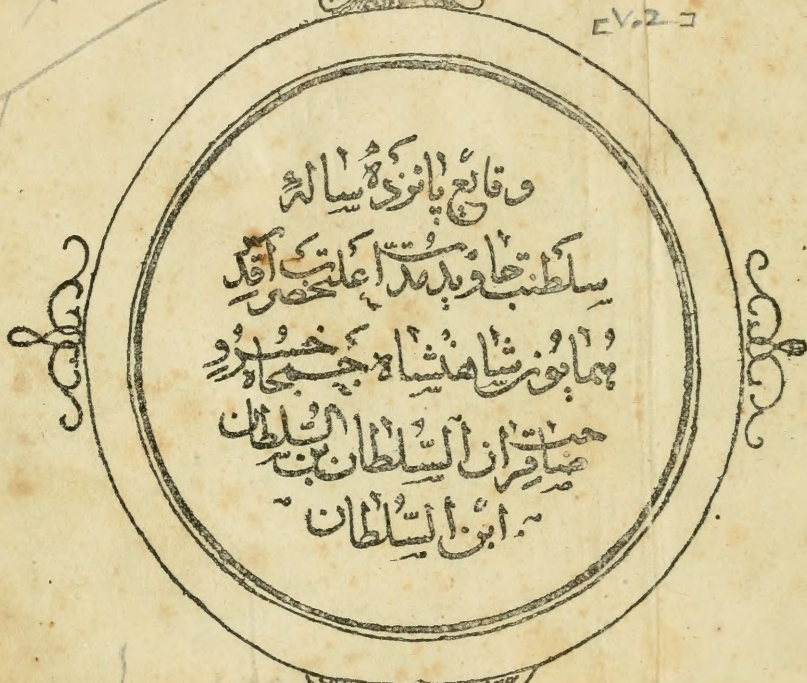 [V.2]
وقایع پانزده سالهٔ
سلطنت جاوید مدّت اعلیحضرت اقدس
همایون شاهنشاه جمجاه خسرو
صاحبقران السّلطان بن السّلطان
ابن السّلطان